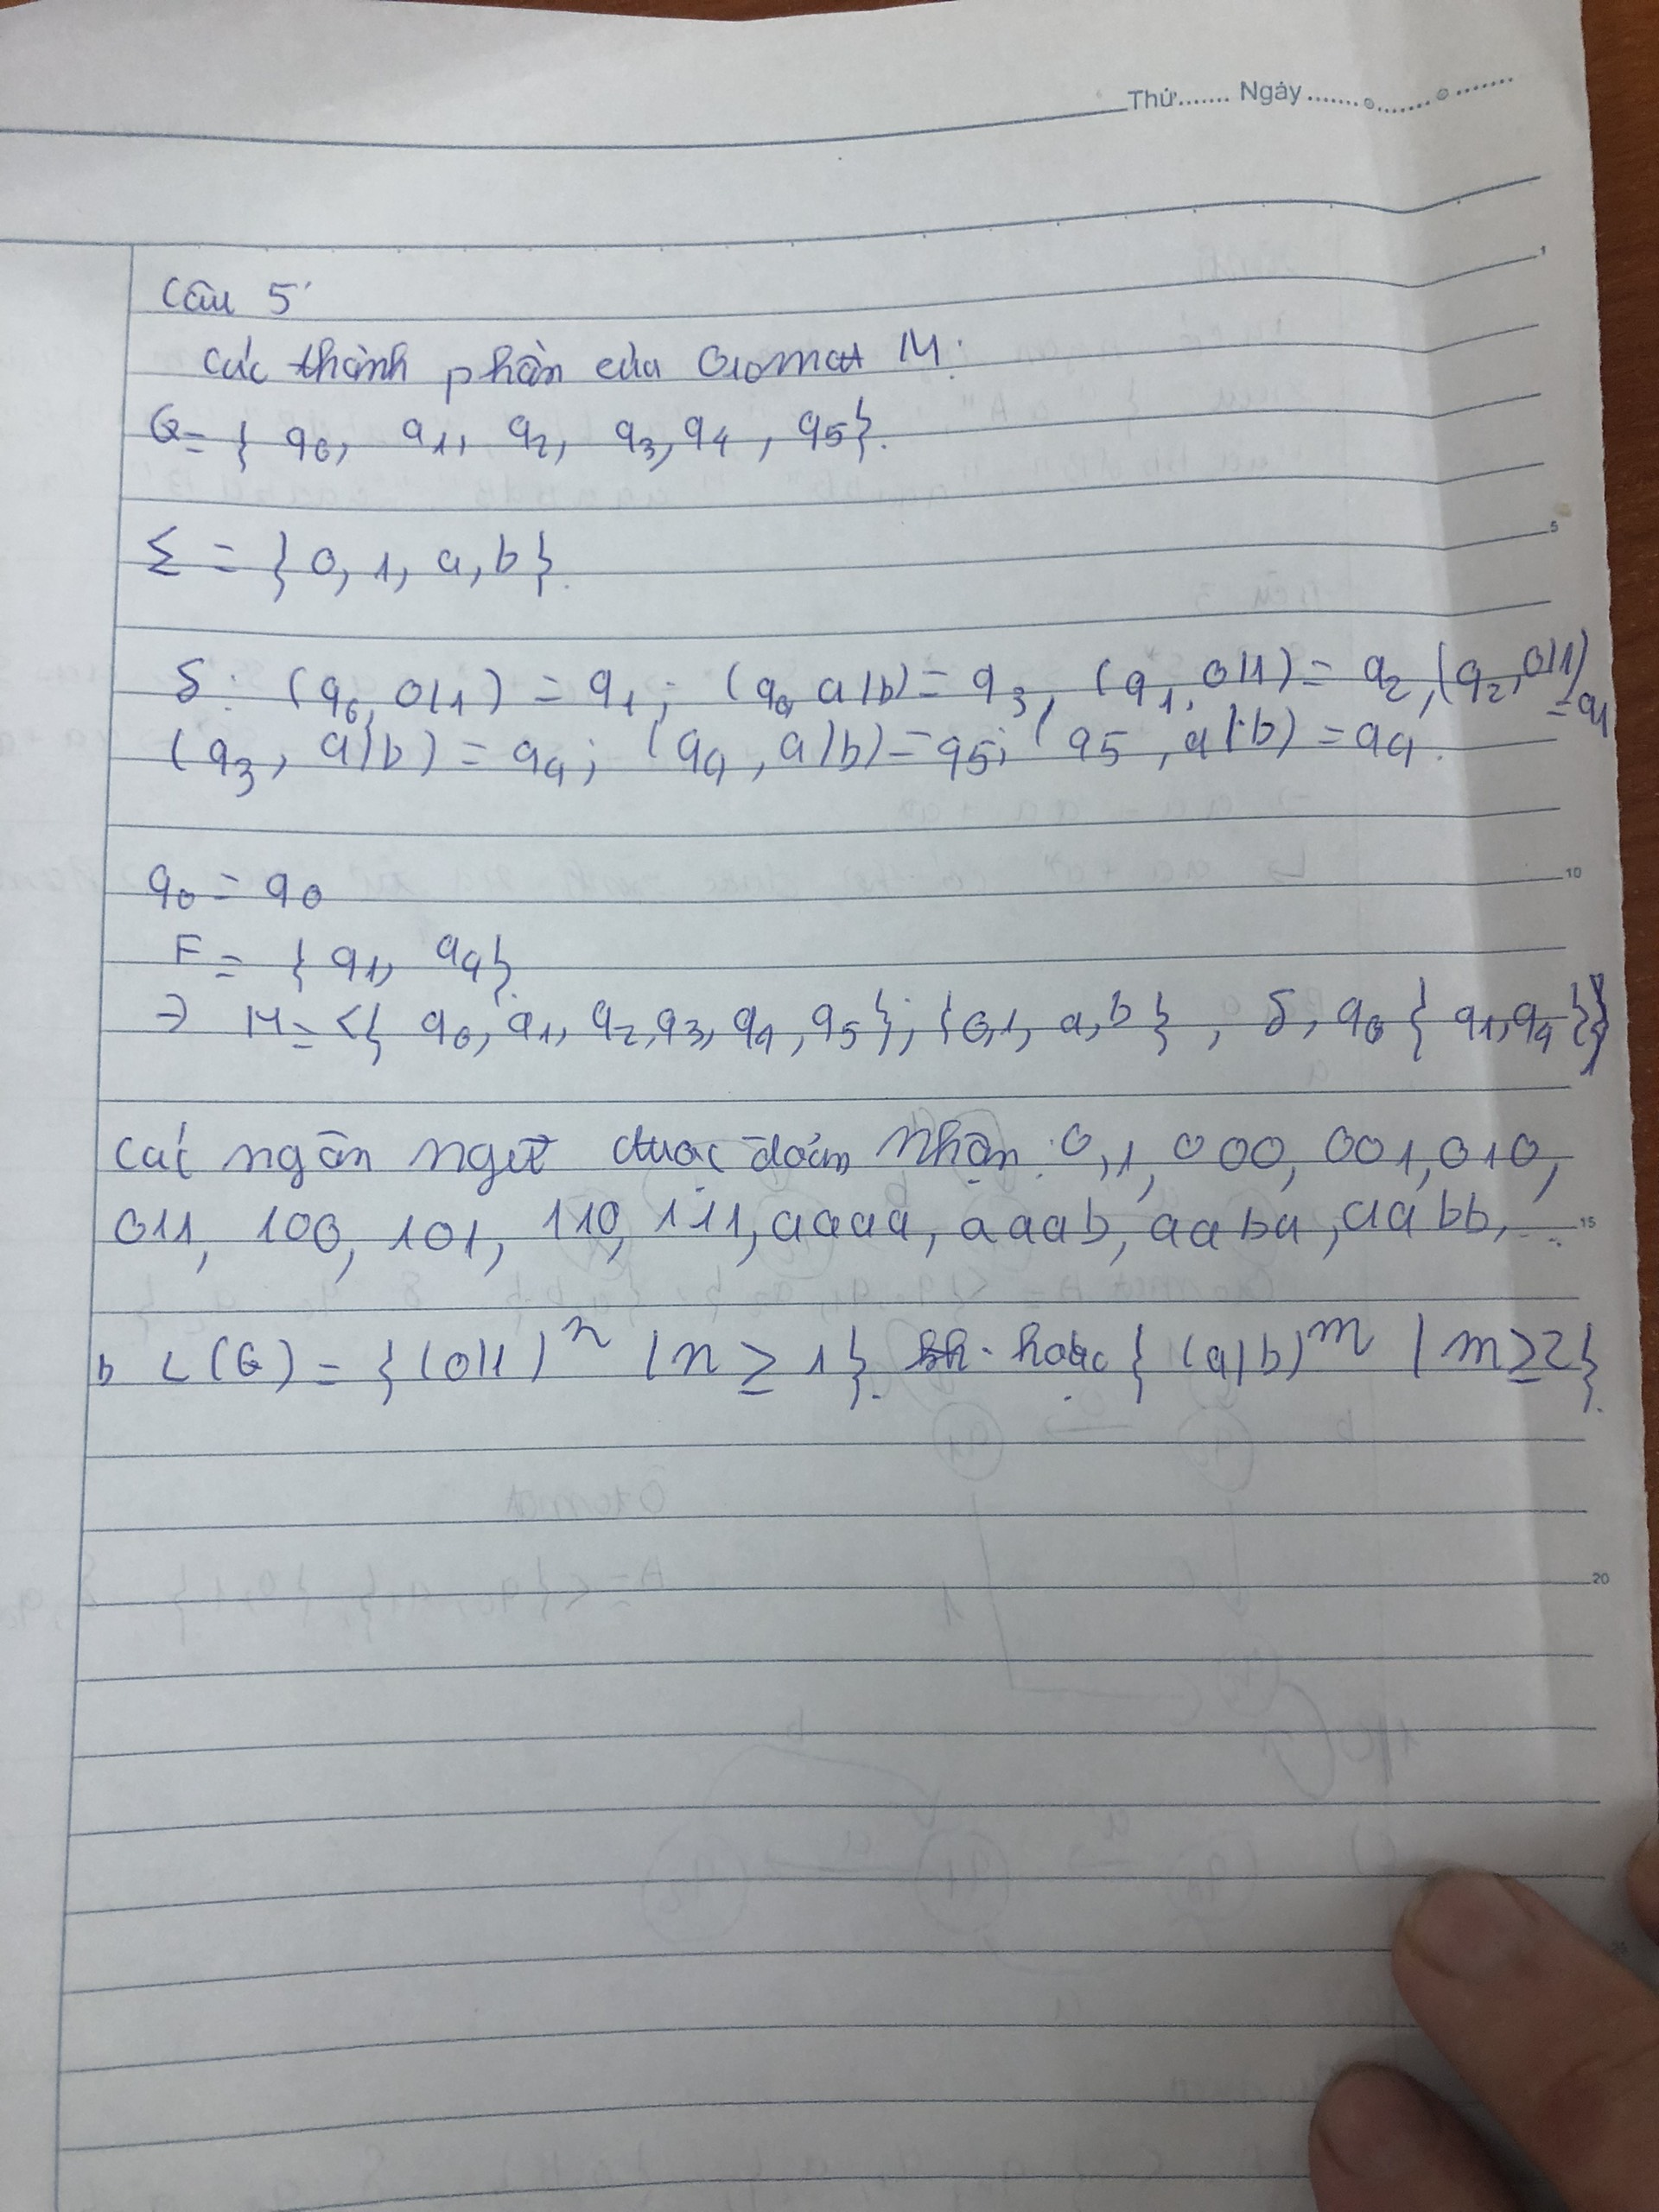 Thứ....... Ngày.............................
Câu 5
Các thành phần của Otomat M:
Q = { q0, q1, q2, q3, q4, q5}.
Σ = { 0, 1, a, b}.
δ: (q0, 0|1) = q1; (q0, a|b) = q3, (q1, 0|1) = q2, (q2, 0|1) = q1
(q3, a|b) = q4; (q4, a|b) = q5; (q5, a|b) = q4.
q0 = q0
F = { q1, q4}.
=> M = <{ q0, q1, q2, q3, q4, q5}; {0,1, a, b}, δ, q0 { q1, q4 }>
Các ngôn ngữ được đoán nhận: 0, 1, 000, 001, 010,
011, 100, 101, 110, 111, aaaa, aaab, aaba, aabb, ...
L(G) = {(0|1)ⁿ | n ≥ 1}. hoặc { (a|b)ᵐ | m ≥ 2}.
1
5
10
15
20